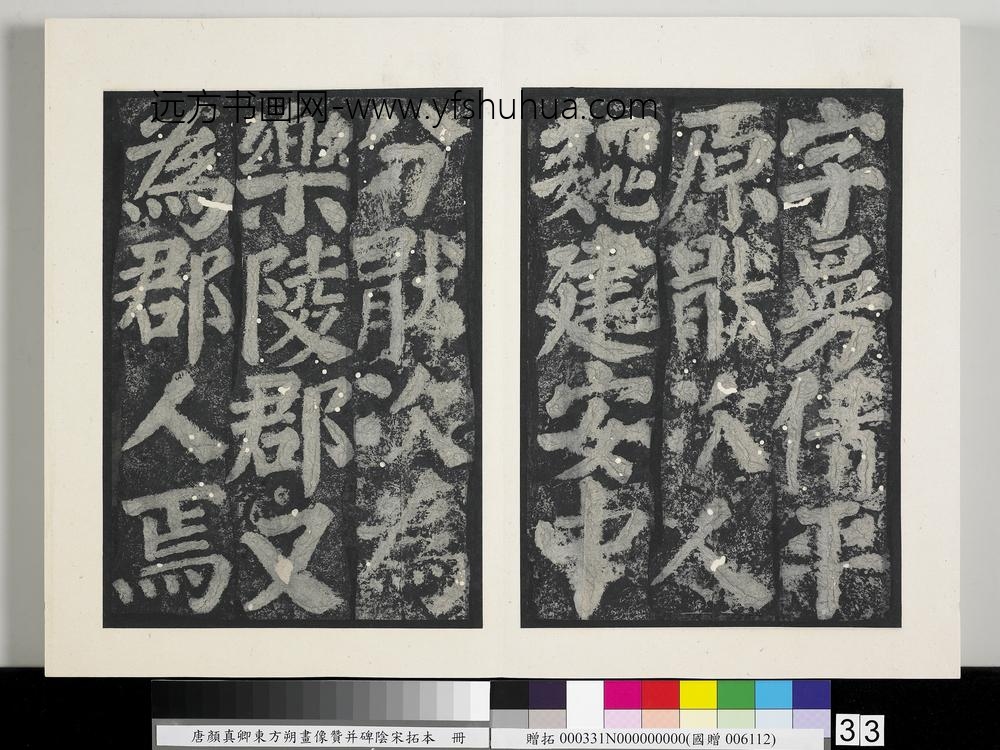 远方书画网-www.yfshuhua.com
字曼倩平
原猒次人
魏建安中
分猒次為
樂陵郡又
為郡人焉
唐顏真卿東方朔畫像贊并碑陰宋拓本 冊
贈拓 000331N000000000(國贈 006112)
33